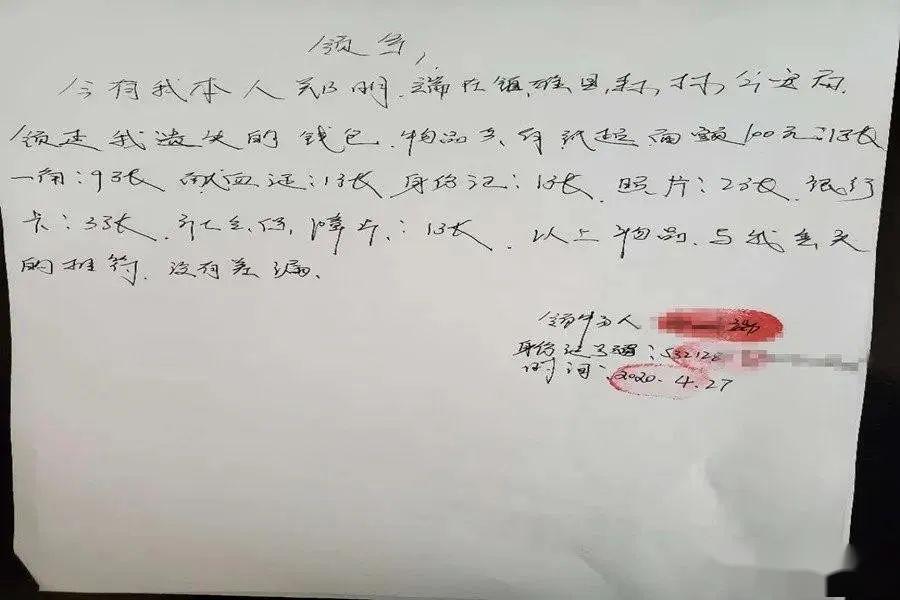 领条,
今有我本人郑明端在镇雄县森林公安局
领走我遗失的钱包.物品共有纸超面额100元:1张
一角:9张 献血证:1张 身份证:1张.照片:2张.银行
卡:3张.社会保障卡:1张.以上物品与我丢失
的相符.没有差漏.
领物人 端
身份证号码:532128
时间:2020.4.27